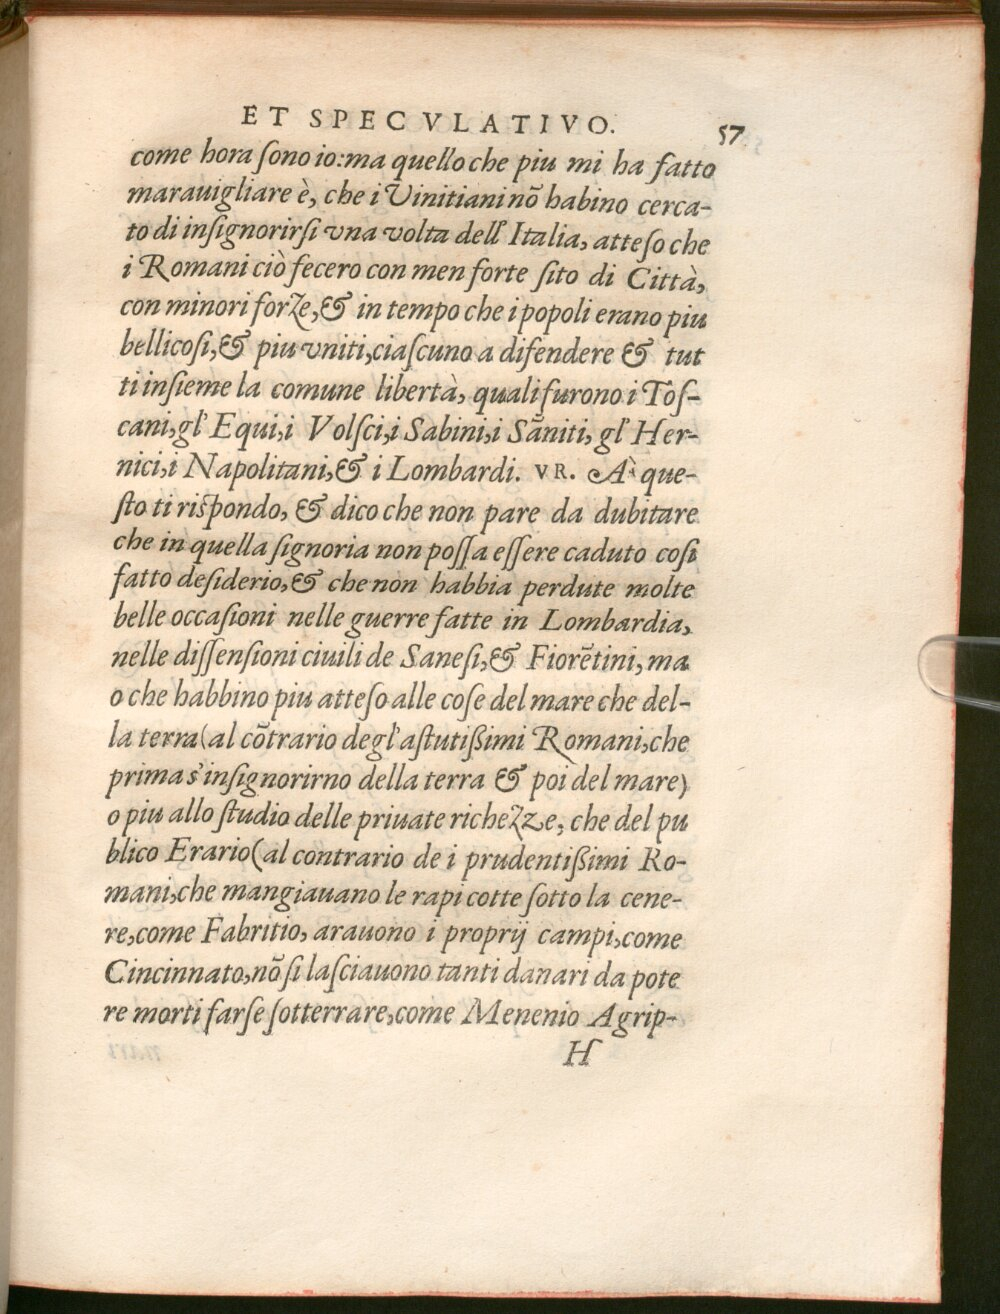 ET SPECVLATIVO. 57
come hora sono io:ma quello che piu mi ha fatto
marauigliare è, che i Vinitiani nõ habino cerca-
to di insignorirsi vna volta dell' Italia, atteso che
i Romani ciò fecero con men forte sito di Città,
con minori forze,& in tempo che i popoli erano piu
bellicosi,& piu vniti,ciascuno a difendere & tut
ti insieme la comune libertà, quali furono i Tos-
cani,gl' Equi,i Volsci,i Sabini,i Sãniti, gl' Her-
nici,i Napolitani,& i Lombardi. VR. A` que-
sto ti rispondo, & dico che non pare da dubitare
che in quella signoria non possa essere caduto cosi
fatto desiderio,& che non habbia perdute molte
belle occasioni nelle guerre fatte in Lombardia,
nelle dissensioni ciuili de Sanesi,& Fiorẽtini, ma
o che habbino piu atteso alle cose del mare che del-
la terra(al cõtrario degl' astutißimi Romani,che
prima s'insignorirno della terra & poi del mare)
o piu allo studio delle priuate richezze, che del pu
blico Erario(al contrario de i prudentißimi Ro-
mani,che mangiauano le rapi cotte sotto la cene-
re,come Fabritio, arauono i proprij campi,come
Cincinnato,nõ si lasciauono tanti danari da pote
re morti farse sotterrare,come Menenio Agrip-
H